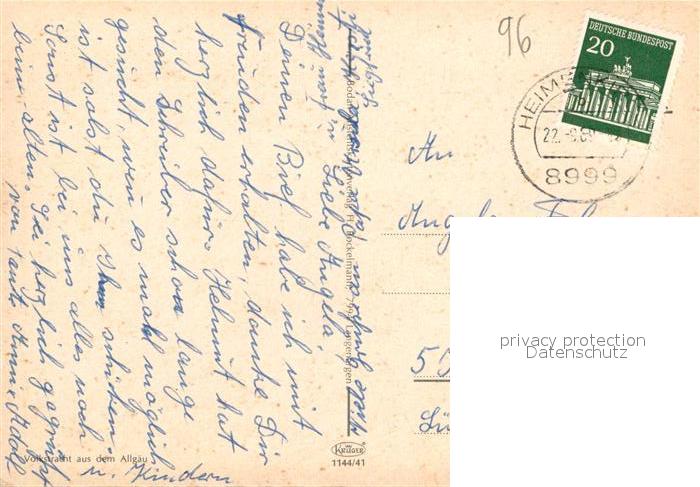 96
DEUTSCHE BUNDESPOST
20
HEIMENKIRCH
8999
An
Liebe Angela!
Deinen Brief habe ich mit
Freuden erhalten, danke Dir
herzlich dafür. Helmut hat
den Schreiber schon lange
gesucht, wenn es mal möglich
ist salst du Ihm schreiben.
Sonst ist bei uns alles noch
beim alten. Sei herzlich gegrüßt
von Tante
u. Kindern
Volkstracht aus dem Allgäu
KRÜGER
1144/41
privacy protection
Datenschutz